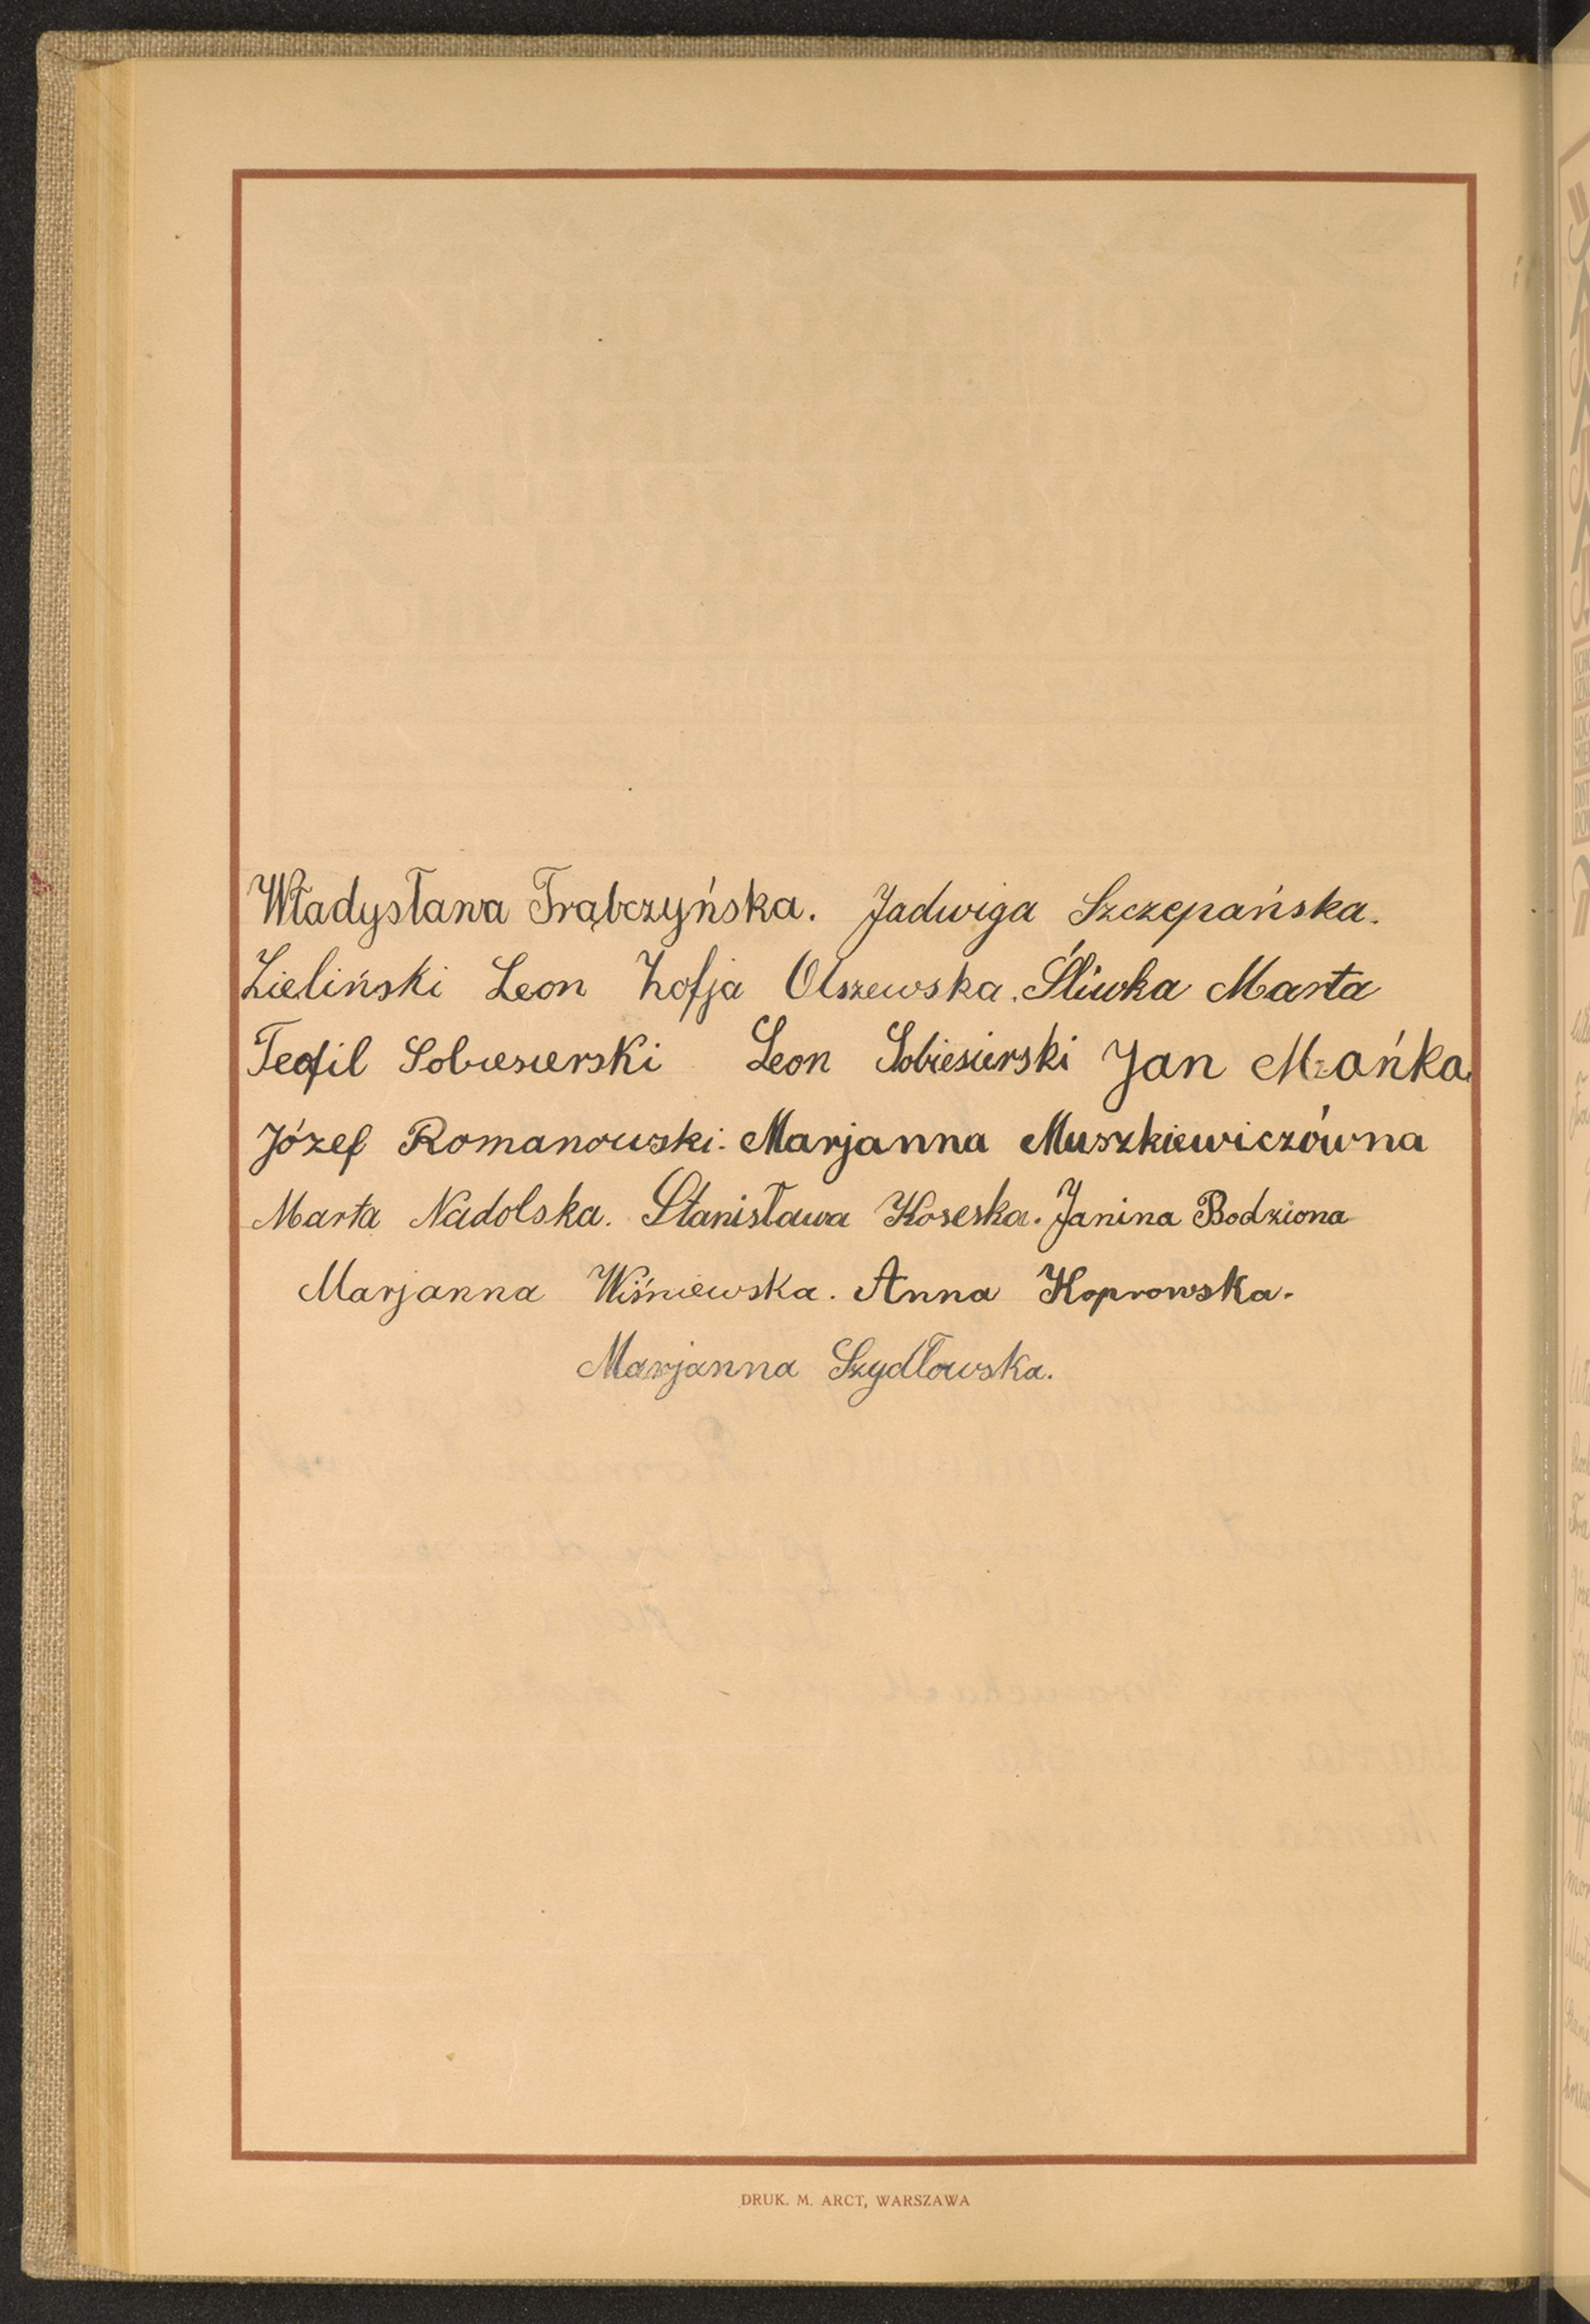 Władysława Trąbczyńska. Jadwiga Szczepańska.
Zieliński Leon Zofja Olszewska. Śliwka Marta
Teofil Sobiesierski Leon Sobiesierski Jan
Józef Romanowski. Marjanna Muszkiewiczówna
Marta Nadolska. Stanisława Koseska. Janina Bodziona
Marjanna Wiśniewska. Anna Koprowska.
Marjanna Szydłowska.
DRUK. M. ARCT, WARSZAWA